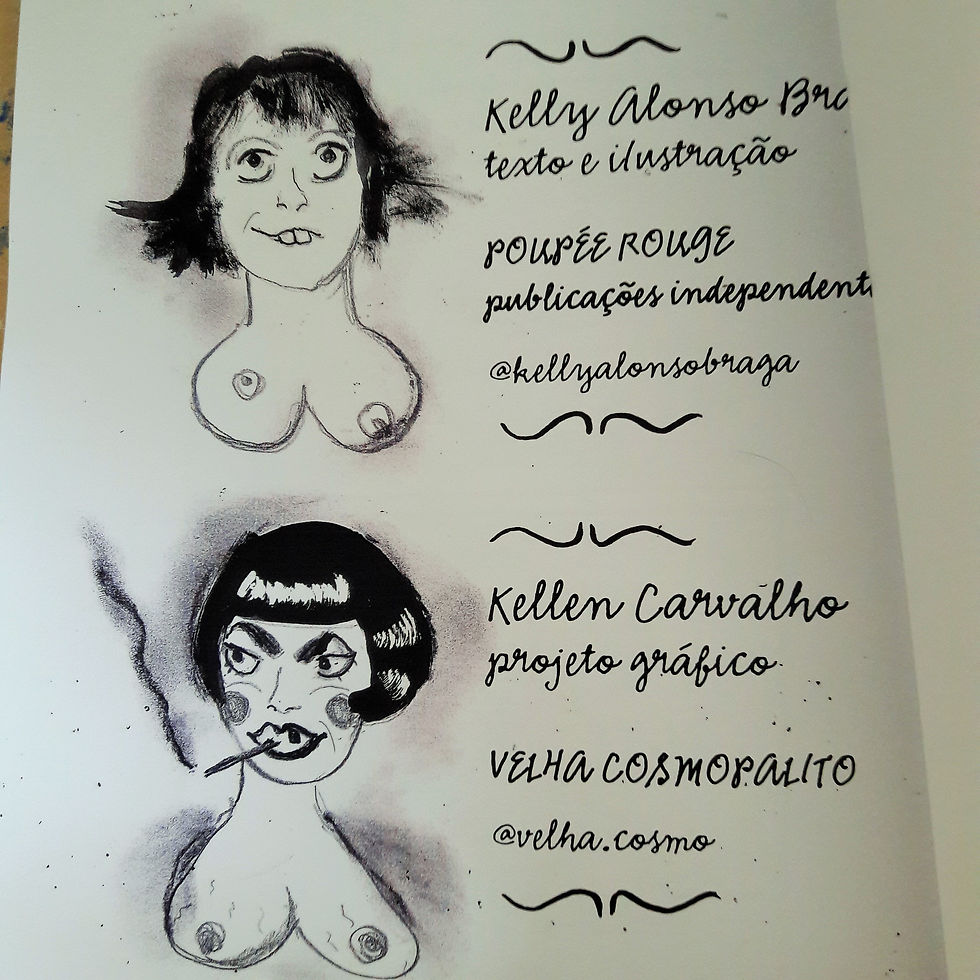 Kelly Alonso Bra
texto e ilustração
POUPÉE ROUGE
publicações independent
@kellyalonsobraga
Kellen Carvalho
projeto gráfico
VELHA COSMOPALITO
@velha.cosmo